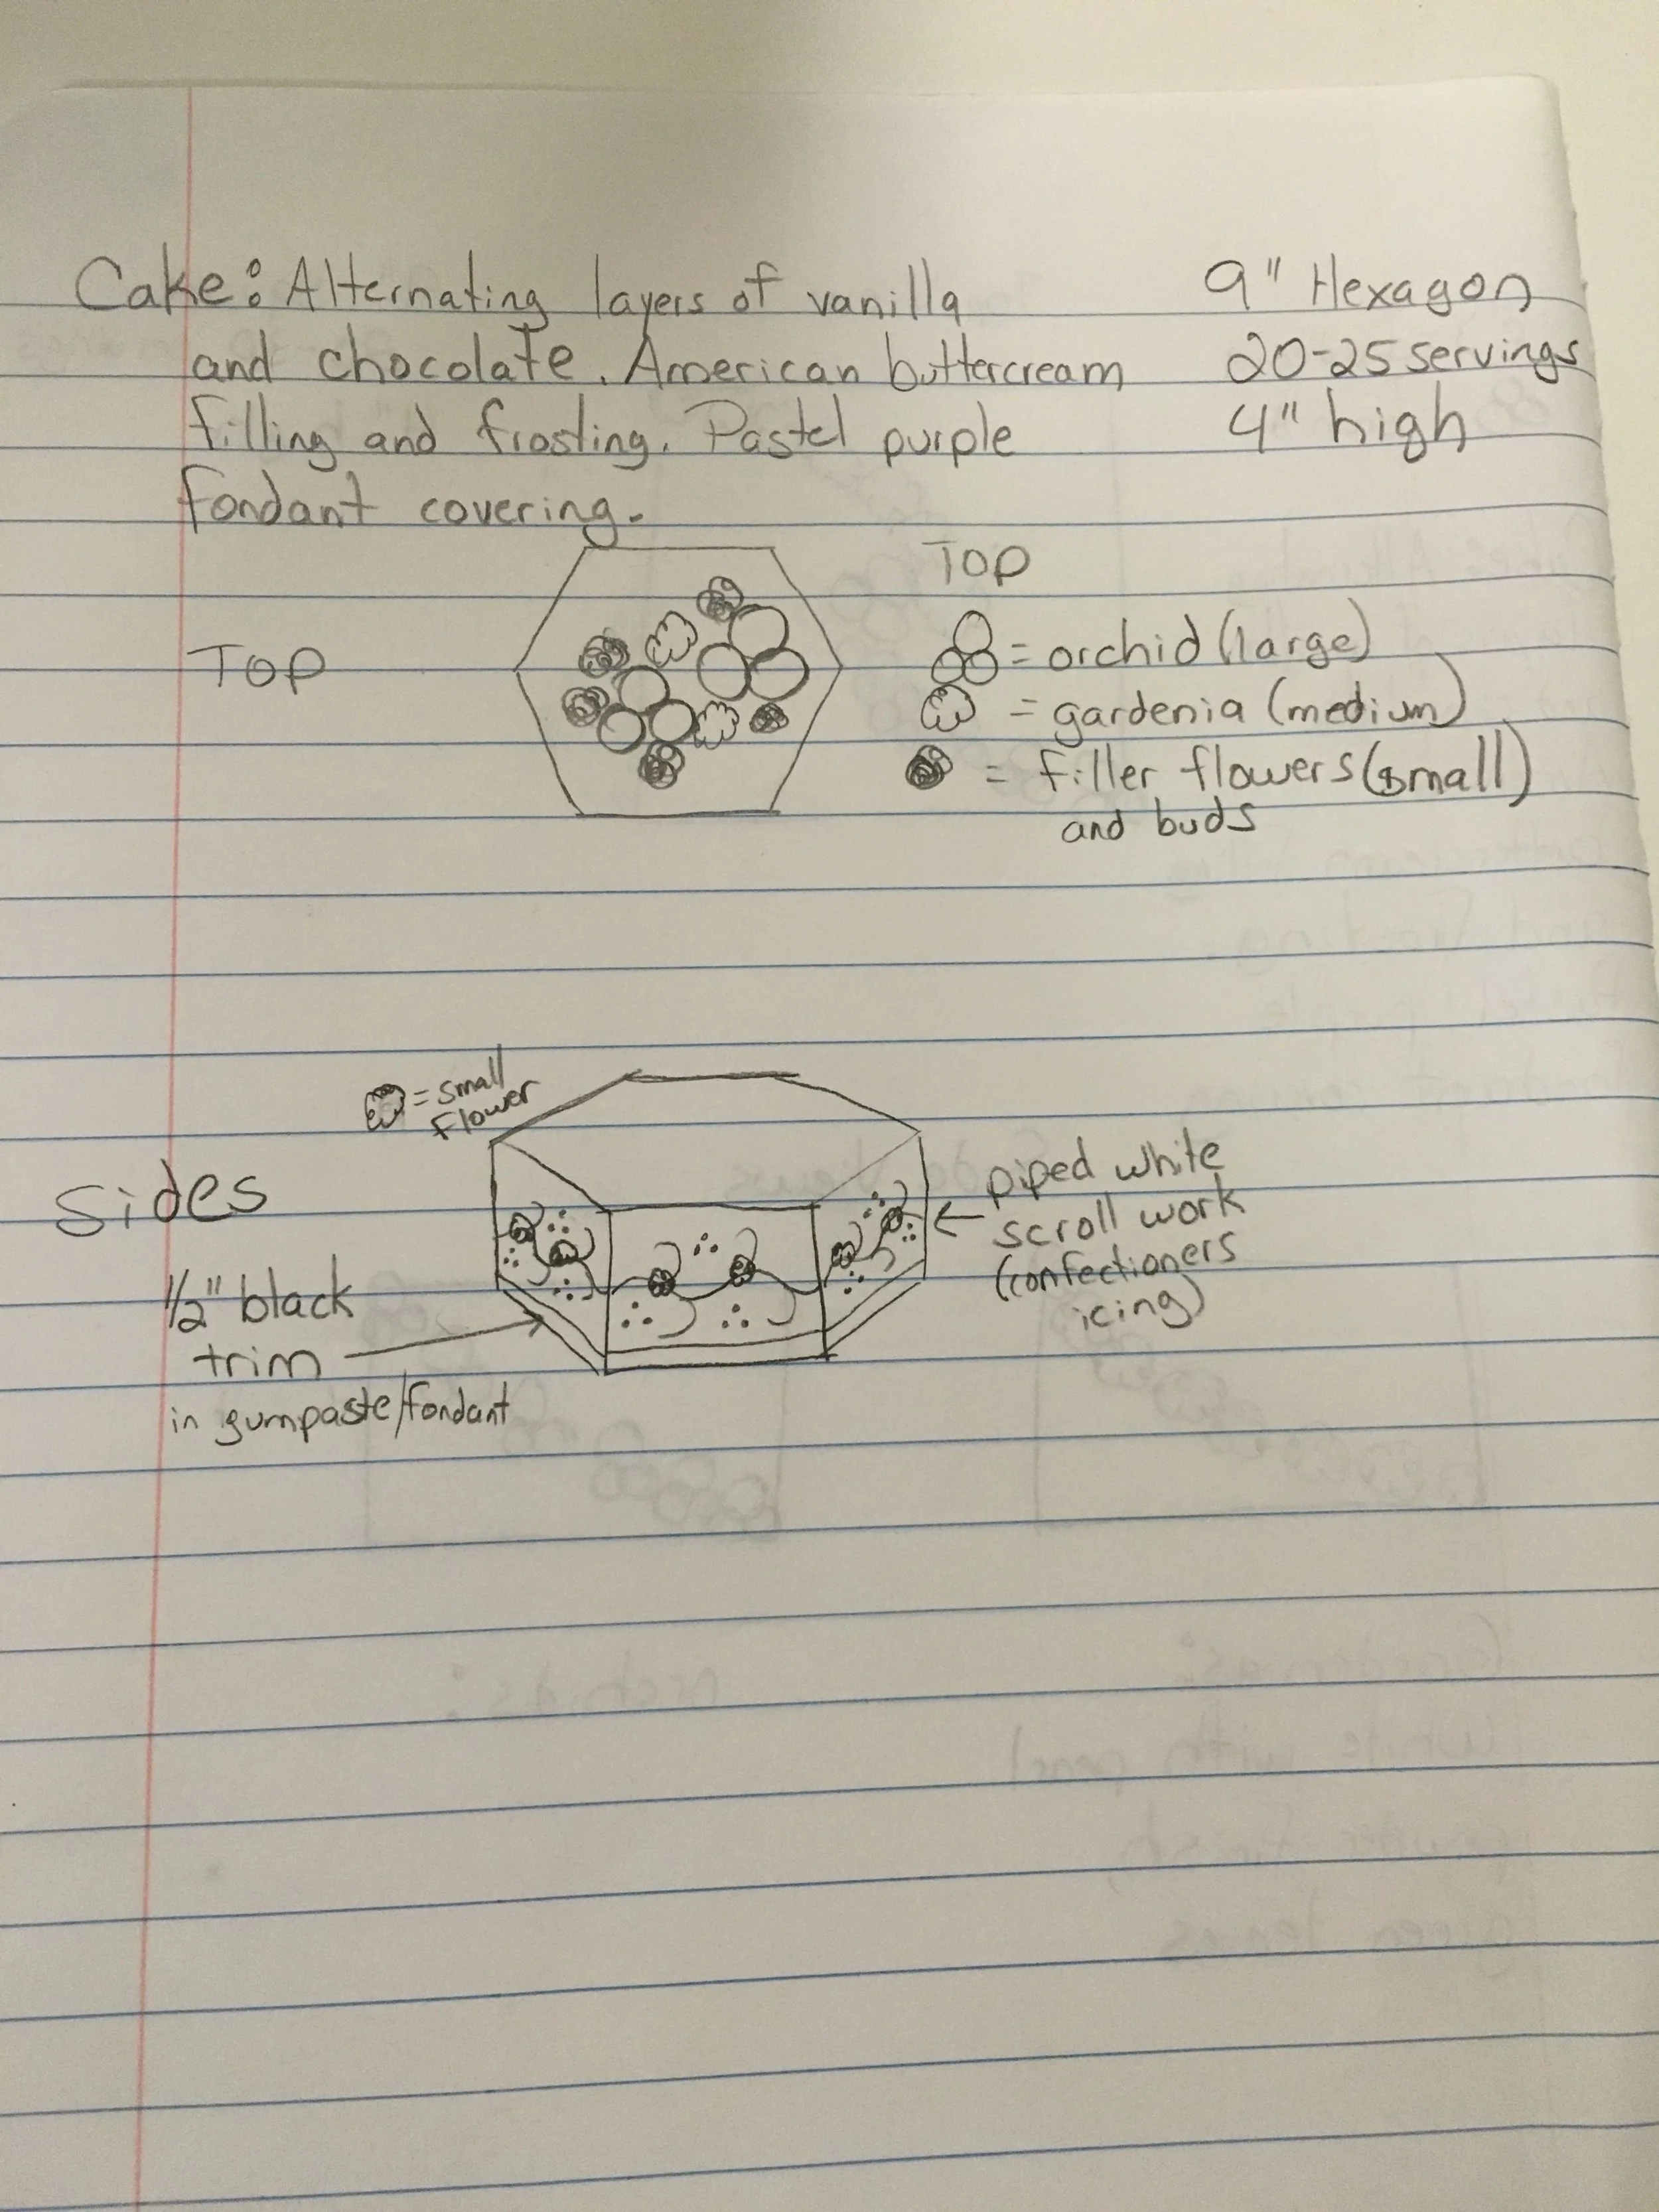 Cake: Alternating layers of vanilla
and chocolate. American buttercream
filling and frosting. Pastel purple
fondant covering.
9" Hexagon
20-25 servings
4" high
TOP
TOP
= orchid (large)
= gardenia (medium)
= filler flowers (small)
and buds
= small
flower
Sides
1/2" black
trim
in gumpaste/fondant
piped white
scroll work
(confectioners
icing)